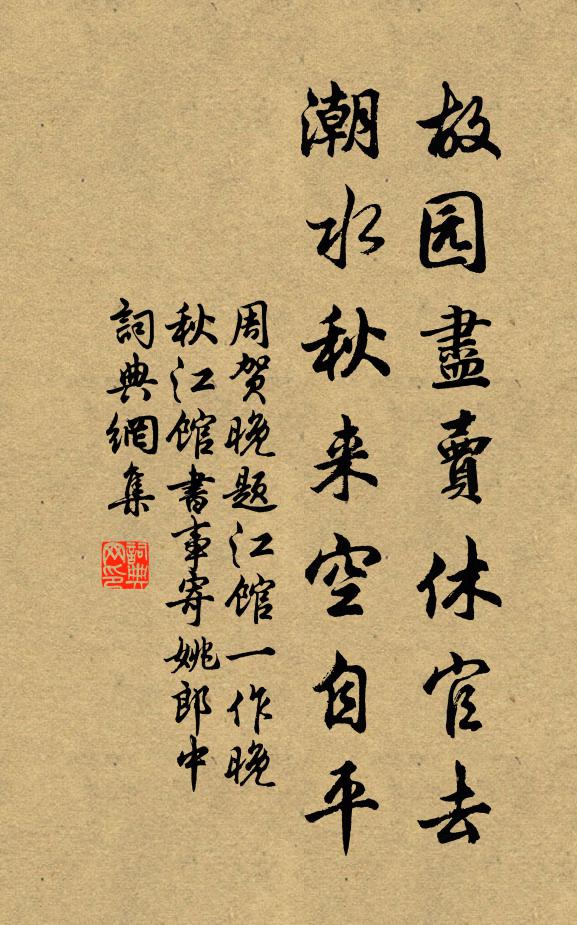 故园盡賣休官去
潮水秋来空自平
周贺晚题江馆一作晚
秋江馆書事寄姚郎中
詞典網集
詞典网印